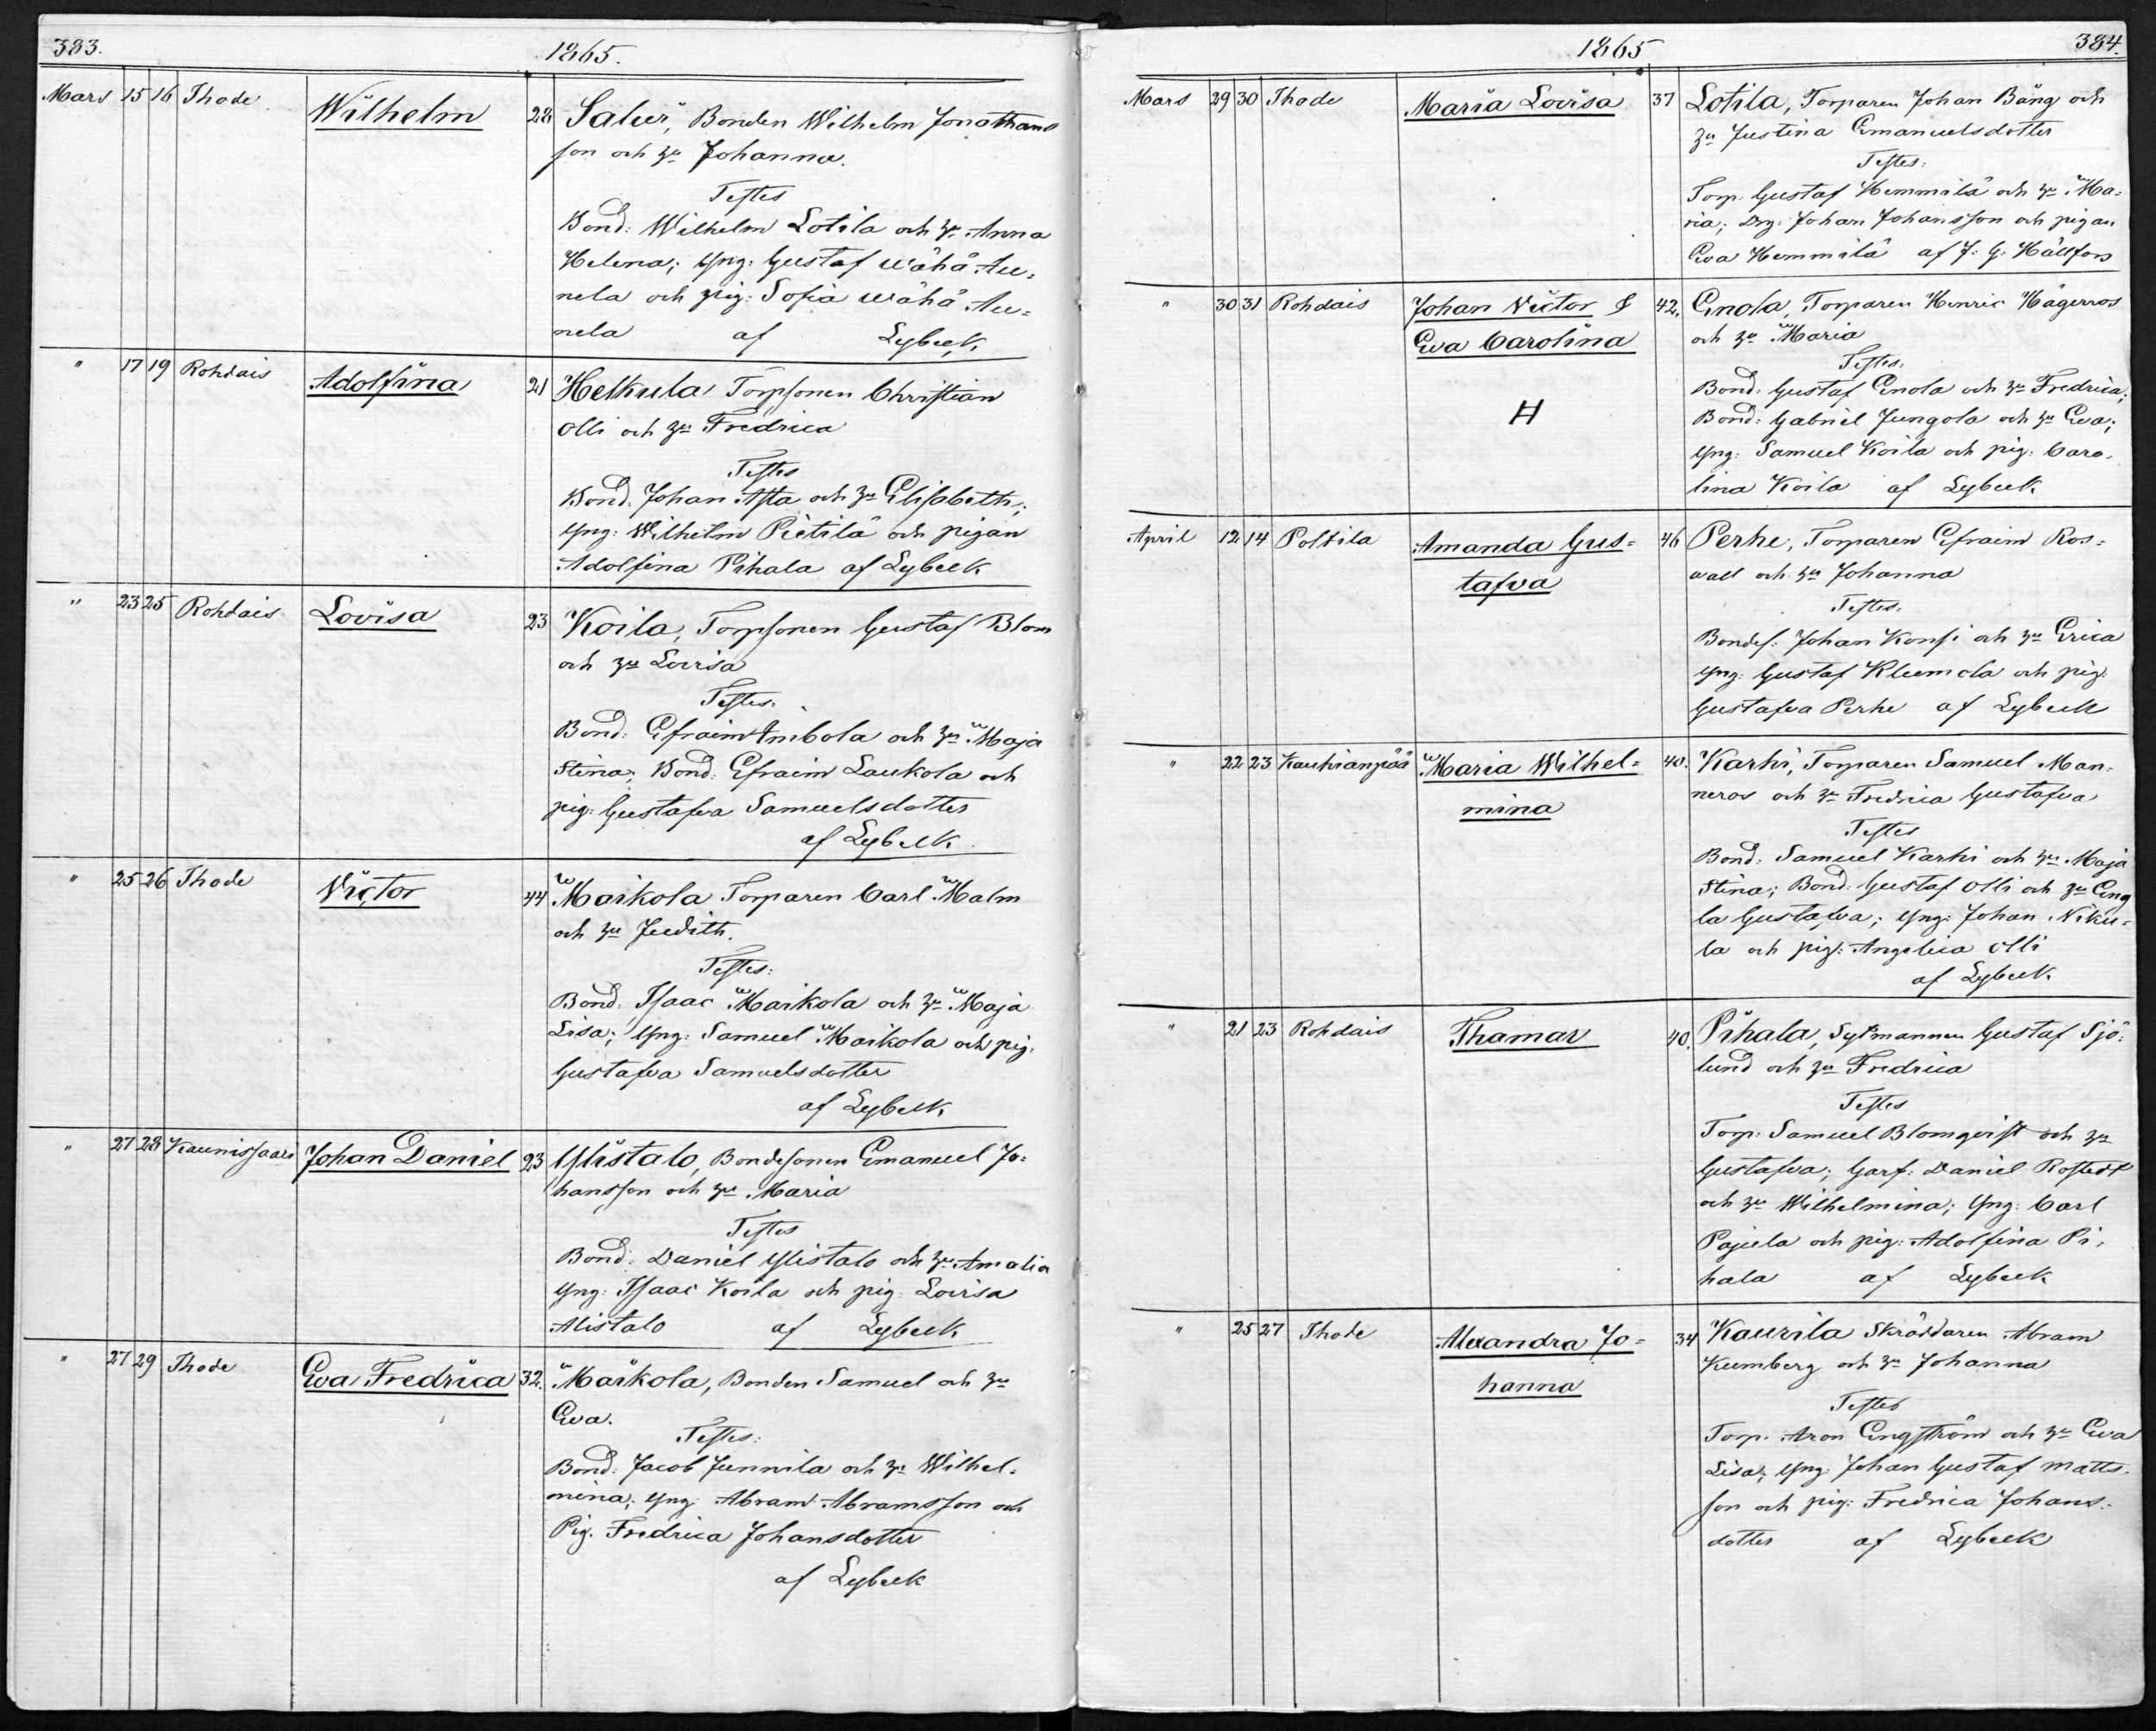 383.
1865.
Mars 15 16 Thode Wilhelm 28 Salui, Bonden Wilhelm Jonathans
son och hu Johanna.
Testes
Bond: Wilhelm Lotila och hu Anna
Helena; Yng: Gustaf Wähä Au=
nela och pig: Sofia Wähä Au=
nela af Lybeck
" 17 19 Rohdais Adolfina 21 Helkula Torpsonen Christian
Olli och hu Fredrica
Testes
Bond. Johan Asta och hu Elisabeth;
Yng: Wilhelm Pietilä och pigan
Adolfina Pihala af Lybeck
" 23 25 Rohdais Lovisa 23 Koila, Torpsonen Gustaf Blom
och hu Lovisa
Testes:
Bond: Efraim Ambola och hu Maja
Stina; Bond: Efraim Laukola och
pig: Gustafva Samuelsdotter
af Lybeck
" 25 26 Thode Victor 44 Maikola Torparen Carl Malm
och hu Judith.
Testes:
Bond: Isaac Maikola och hu Maja
Lisa; Yng: Samuel Maikola och pig:
Gustafva Samuelsdotter
af Lybeck
" 27 28 Kaunissaari Johan Daniel 23 Ylistalo, Bondesonen Emanuel Jo=
hansson och hu Maria
Testes
Bond: Daniel Ylistalo och hu Amalia
Yng: Isaac Koila och pig: Lovisa
Alistalo af Lybeck
" 27 29 Thode Eva Fredrica 32. Maikola, Bonden Samuel och hu
Eva.
Testes:
Bond: Jacob Junnila och hu Wilhel=
mina; Yng Abram Abramsson och
Pig. Fredrica Johansdotter
af Lybeck
1865
384.
Mars 29 30 Thode Maria Lovisa 37 Lotila, Torparen Johan Bäng och
hu Justina Emanuelsdotter
Testes:
Torp: Gustaf Hemmilä och hu Ma=
ria; Drg: Johan Johansson och pigan
Eva Hemmilä af J. G. Hällfors
" 30 31 Rohdais Johan Victor & 42. Enola, Torparen Henric Hägerros
Eva Carolina och hu Maria
Testes:
Bond: Gustaf Enola och hu Fredrica;
H Bond: Gabriel Jungola och hu Eva;
Yng: Samuel Koila och pig: Caro=
lina Koila af Lybeck
April 12 14 Poltila Amanda Gus= 46 Perhe, Torparen Efraim Ros=
tafva wall och hu Johanna
Testes.
Bondes: Johan Konsi och hu Erica
Yng: Gustaf Kleemola och pig:
Gustafva Perhe af Lybeck
" 22 23 Kauhianpää Maria Wilhel= 40. Karhi, Torparen Samuel Man=
mina neros och hu Fredrica Gustafva
Testes
Bond: Samuel Karhi och hu Maja
Stina; Bond: Gustaf Olli och hu Eng
la Gustafva; Yng: Johan Niku=
la och pig: Angelica Olli
af Lybeck
" 21 23 Rohdais Thamar 40. Pihala, Sytmannen Gustaf Sjö=
lund och hu Fredrica
Testes
Torp: Samuel Blomqvist och hu
Gustafva; Garf: Daniel Rostedt
och hu Wilhelmina; Yng: Carl
Pajula och pig: Adolfina Pi=
hala af Lybeck
" 25 27 Thode Alexandra Jo= 34 Kaurila Skräddaren Abram
hanna Kumberg och hu Johanna
Testes
Torp. Aron Engström och hu Eva
Lisa; Yng: Johan Gustaf Matts=
son och pig: Fredrica Johans=
dotter af Lybeck